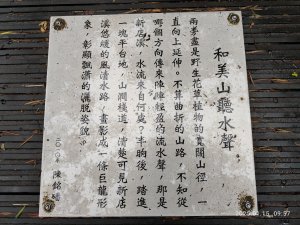 和美山聽水聲
兩旁盡是野生花草植物的寬闊山徑，一
直向上延伸。不算曲折的山路，不知從
哪個方向傳來陣陣輕盈的流水聲，那是
新店溪，水流來自何處？半晌後，踏進
一塊平台地，山澗棧道，清楚可見新店
溪悠緩的風清水路，畫影成一條巨龍形
象，彰顯飄灑的灑脱姿貌。
二〇一〇年 陳銘磻